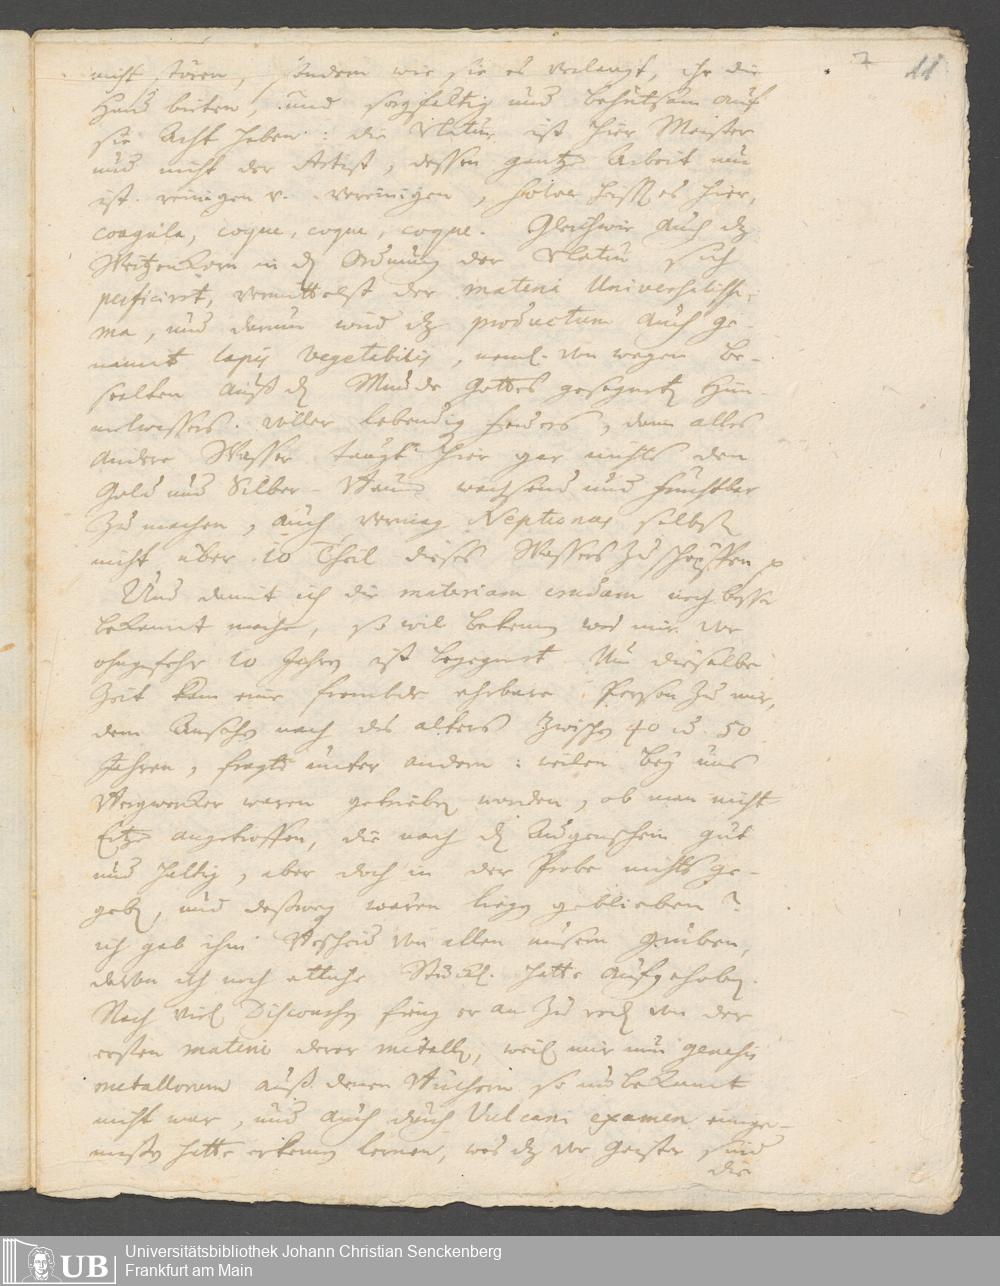 7 11
nicht stören, sondern wie sie es verlangt, ihr die
Hand bieten, und sorgfältig und behutsam auf
sie Acht haben: die Natur ist hier Meister
und nicht der Artist, dessen gantze Arbeit nur
ist reinigen v. vereinigen, solve heist es hier,
coagula, coque, coque, coque. Gleichwie auch dz
Weitzenkorn in der Ordnung der Natur sich
perficirt, vermittelst der materia Universalissi-
ma, und darum wird dz productum auch ge-
nannt lapis vegetabilis, neml. von wegen be-
seelten auß dem Munde Gottes gesegneten Him-
melwassers voller lebendig feuers, dann alles
andere Wasser taugt hier gar nichts den
Gold und Silber-Baum wachsend und fruchtbar
zu machen, auch vermag Neptunus selbst
nicht über 10 Theil dieses Wassers zu schöpffen p
Und damit ich die materiam crudam noch besser
bekannt mache, so wil bekennen was mir vor
ohngefehr 20 Jahren ist begegnet. Um dieselbe
Zeit kam eine frembde ehrbare Person zu mir,
dem Ansehen nach des alters zwischen 40 u. 50
Jahren, fragte unter andern: weilen bey uns
Bergwercker waren getrieben worden, ob man nicht
Ertze angetroffen, die nach dem Augenschein gut
und haltig, aber doch in der Probe nichts ge-
geben, und deßwegen wären liegen geblieben?
ich gab ihm Bescheid von allen unsern Gruben,
davon ich noch etliche Stückl. hatte aufgehoben.
Nach viel Discoursen fieng er an zu reden von der
ersten materie derer metallen, weil mir nun genesis
metallorum auß denen Büchern so unbekannt
nicht war, und auch durch Vulcani examen einge-
hatte erkennen lernen, was dz vor Geister sind
die
Universitätsbibliothek Johann Christian Senckenberg
Frankfurt am Main
UB